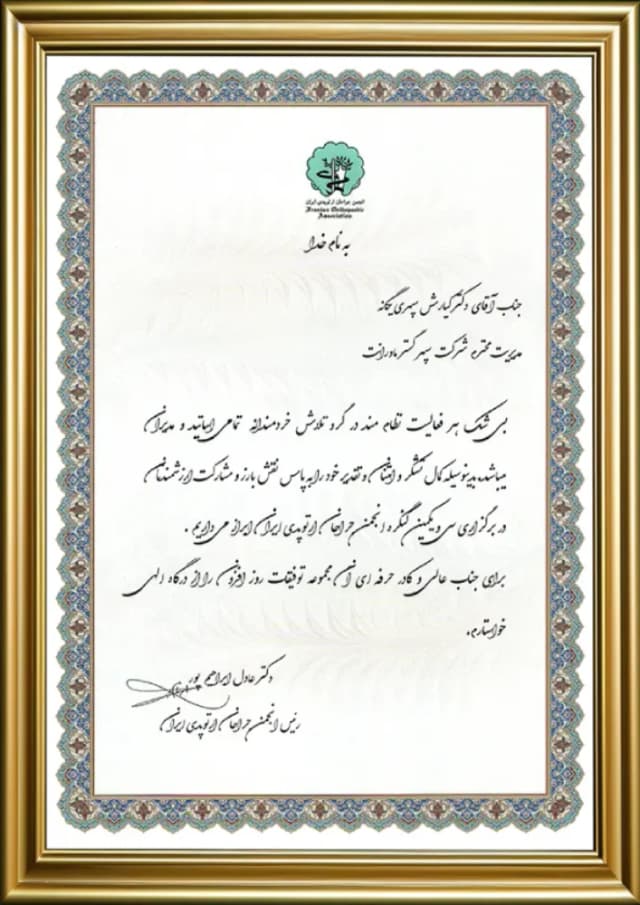 انجمن جراحان ارتوپدی ایران
Iranian Orthopaedic
Association
به نام خدا
جناب آقای دکتر کیارش سپهری یگانه
مدیریت محترم شرکت سپهر گستر ماورا طب
بی شک هر فعالیت نظام مند در گرو تلاش خردمندانه تمامی اساتید و مدیران
میباشد. بدینوسیله کمال تشکر و امتنان و تقدیر خود را به پاس نقش بارز و مشارکت ارزشمندتان
در برگزاری سی و یکمین کنگره انجمن جراحان ارتوپدی ایران ابراز می داریم .
برای جناب عالی و کادر حرفه ای ان مجموعه توفیقات روز افزون را از درگاه الهی
خواستارم.
دکتر عادل ابراهیم پور
رئیس انجمن جراحان ارتوپدی ایران